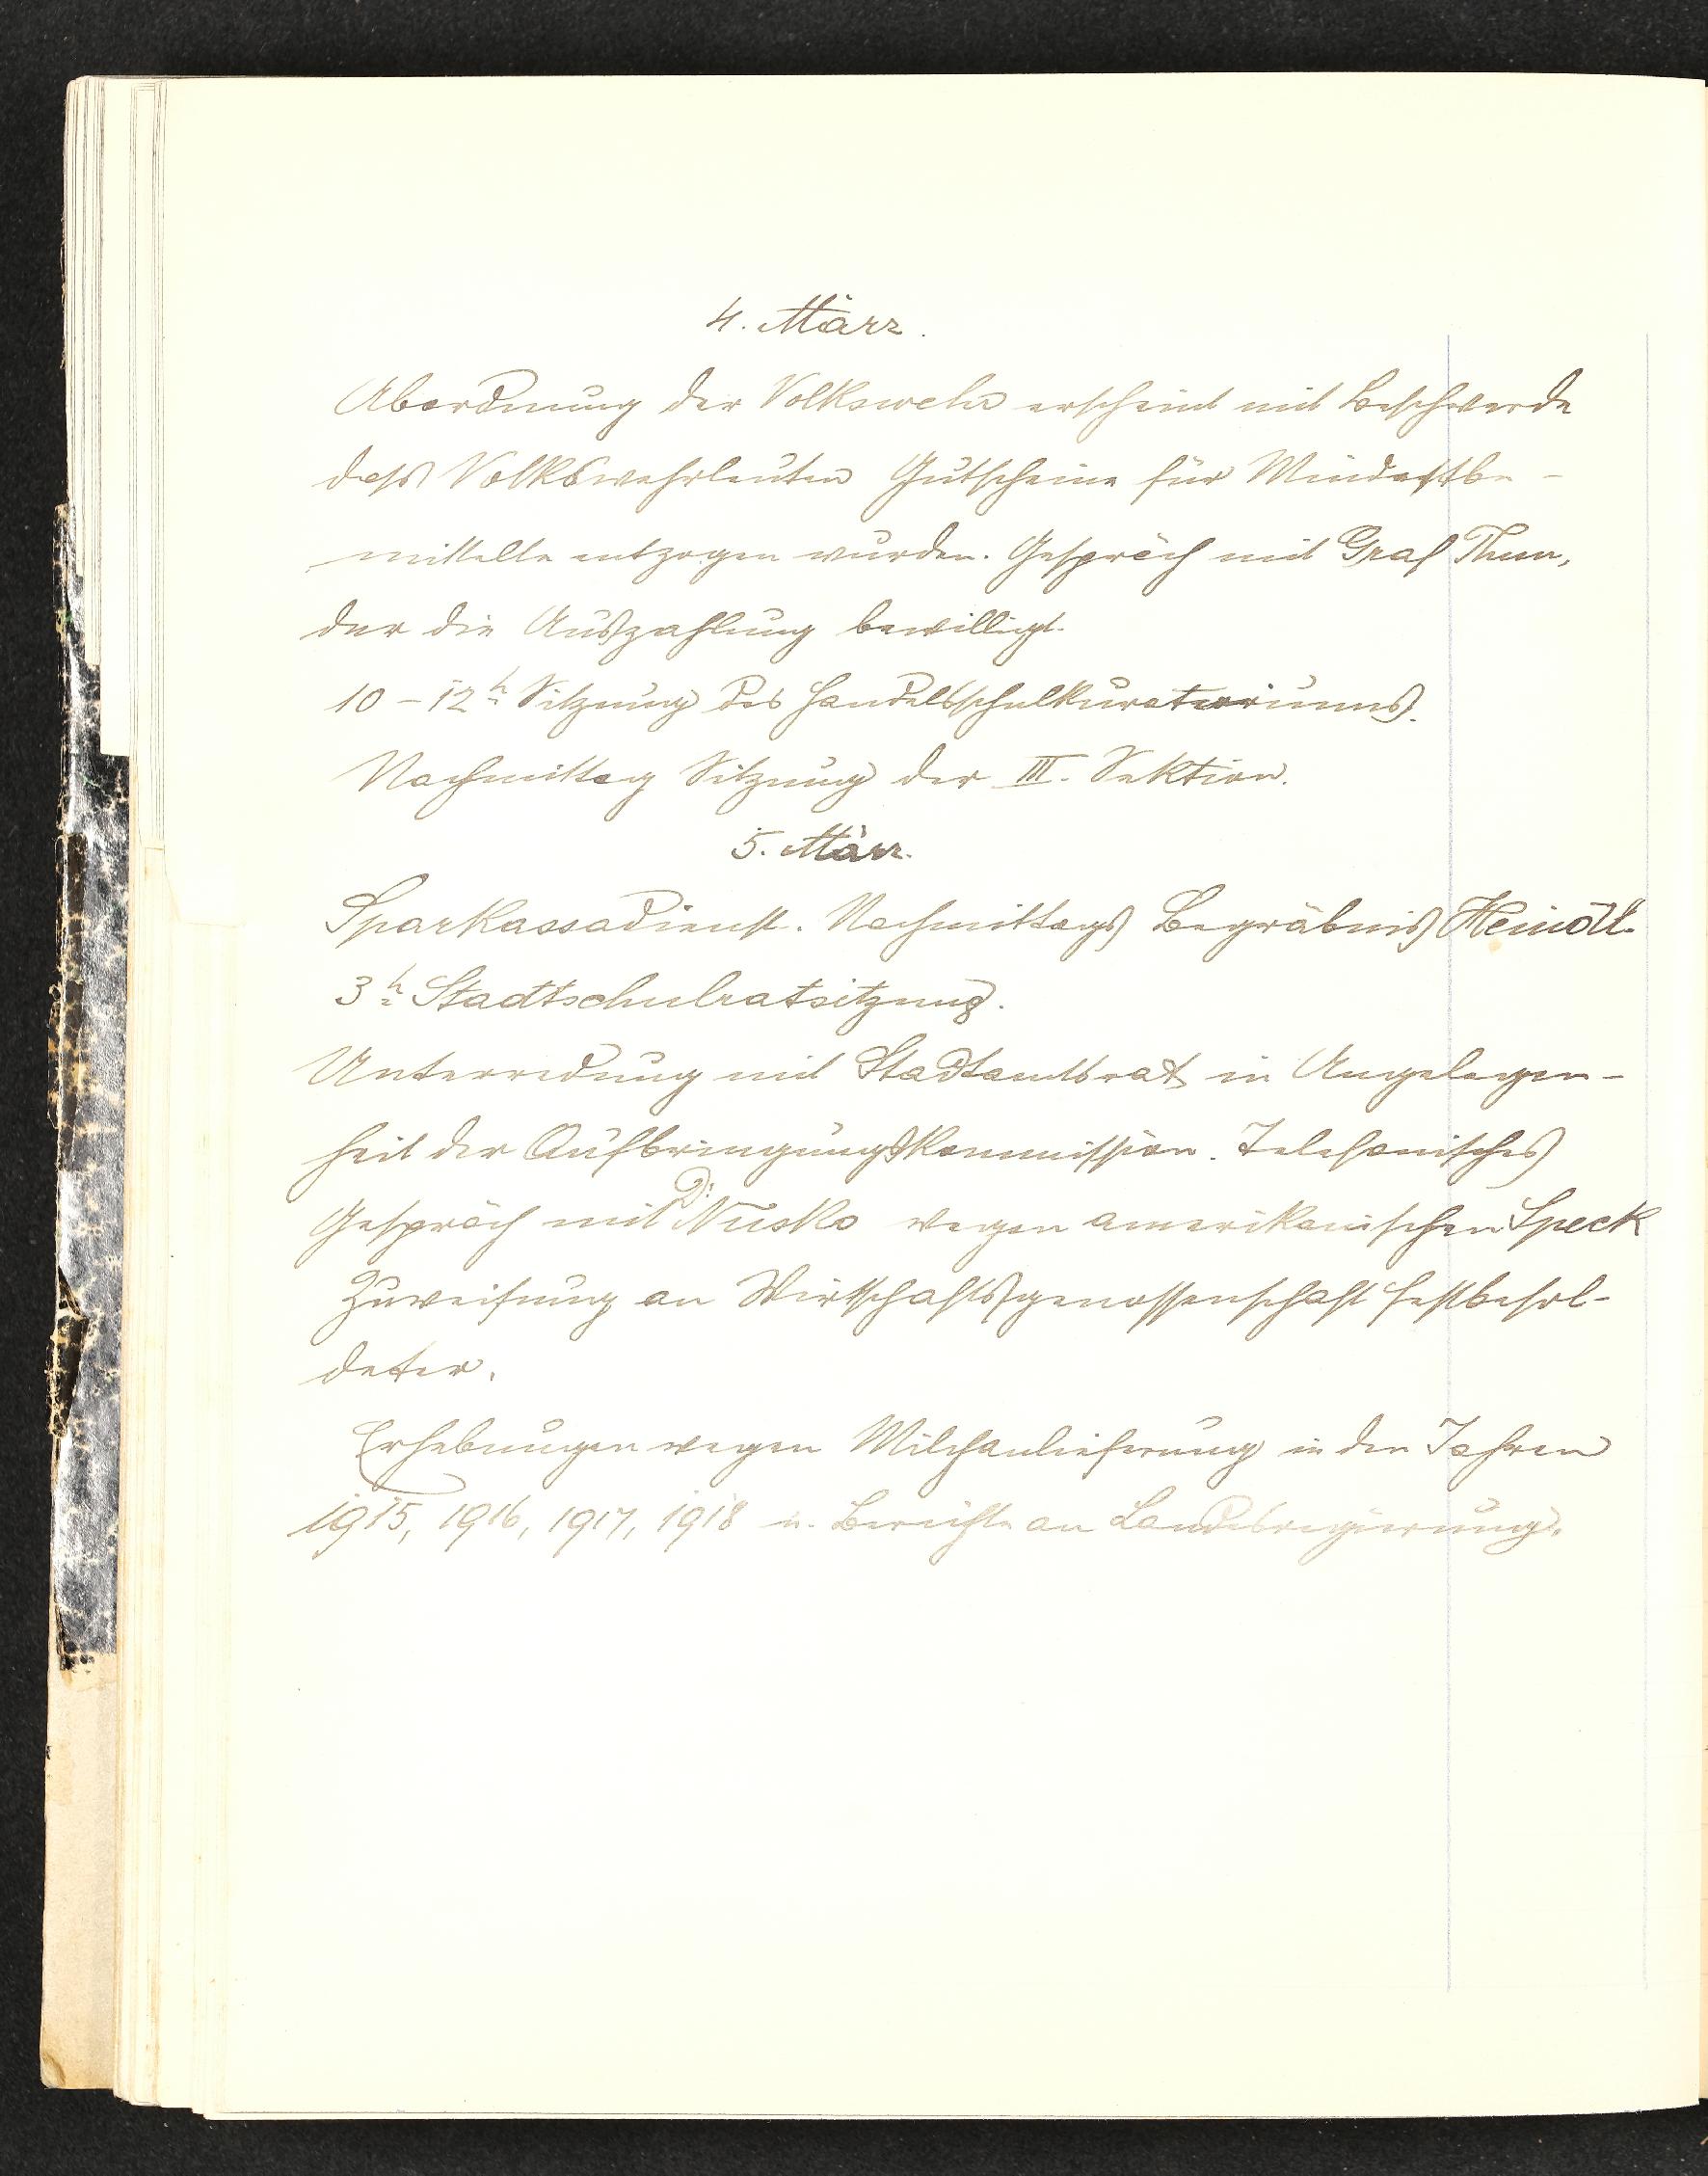 4. März.
Abordnung der Volkswehr erscheint mit Beschwerde
dass Volkswehrleuten Gutscheine für Mindestbe-
mittelte entzogen wurden. Gespräch mit Graf Thun,
der die Auszahlung bewilligt.
10-12h Sitzung des Handelsschulkuratoriums.
Nachmittag Sitzung der III. Sektion.
5. März.
Sparkassadienst. Nachmittags Begräbnis Heindl.
3h Stadtschulratsitzung.
Unterredung mit Stadtamtsrat in Angelegen-
heit der Aufbringungskommission. Telefonisches
Gespräch mit Dr Nusko wegen amerikanischen Speck
Zuweisung an Wirtschaftsgenossenschaft festbesol-
deter.
Erhebungen wegen Milchanlieferung in den Jahren
1915, 1916, 1917, 1918 u. Berichte an Landesregierung.